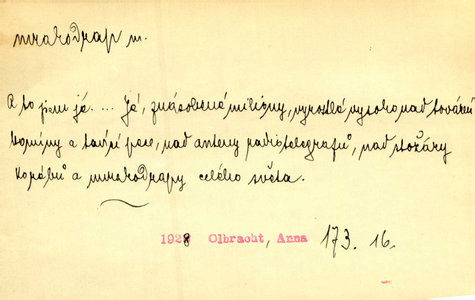 mrakodrap m.
A to jsem já. ... Já, znásobená miliony, vyrostlá vysoko nad tovární
komíny a tavicí pece, nad anteny radiotelegrafů, nad stožáry
korábů a mrakodrapy celého světa.
1928 Olbracht, Anna 173. 16.